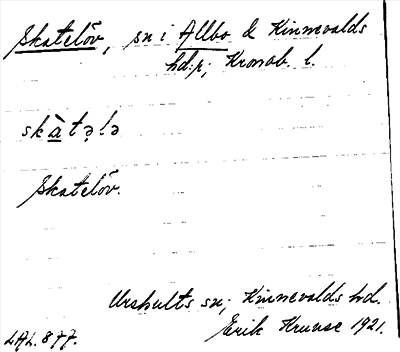 Skatelöv, sn i Allbo & Kinnevalds
hd:r; Kronob. l.
skàtələ
Skatelöv.
Urshults sn; Kinnevalds hd.
LAL.877. Erik Kruuse 1921.